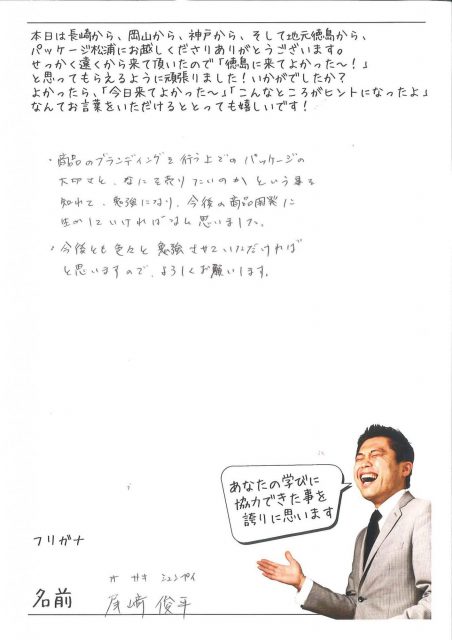 本日は長崎から、岡山から、神戸から、そして地元徳島から、
パッケージ松浦にお越しくださりありがとうございます。
せっかく遠くから来て頂いたので「徳島に来てよかった〜！」
と思ってもらえるように頑張りました！いかがでしたか？
よかったら、「今日来てよかった〜」「こんなところがヒントになったよ」
なんてお言葉をいただけるととっても嬉しいです！
・商品のブランディングを行う上でのパッケージの
大切さと、なにを売りたいのかという事を
知れて、勉強になり、今後の商品開発に
生かしていければなと思いました。
・今後とも色々と勉強させていただければ
と思いますので、よろしくお願いします。
あなたの学びに
協力できた事を
誇りに思います
フリガナ
オサキ シュンペイ
名前 尾崎 俊平